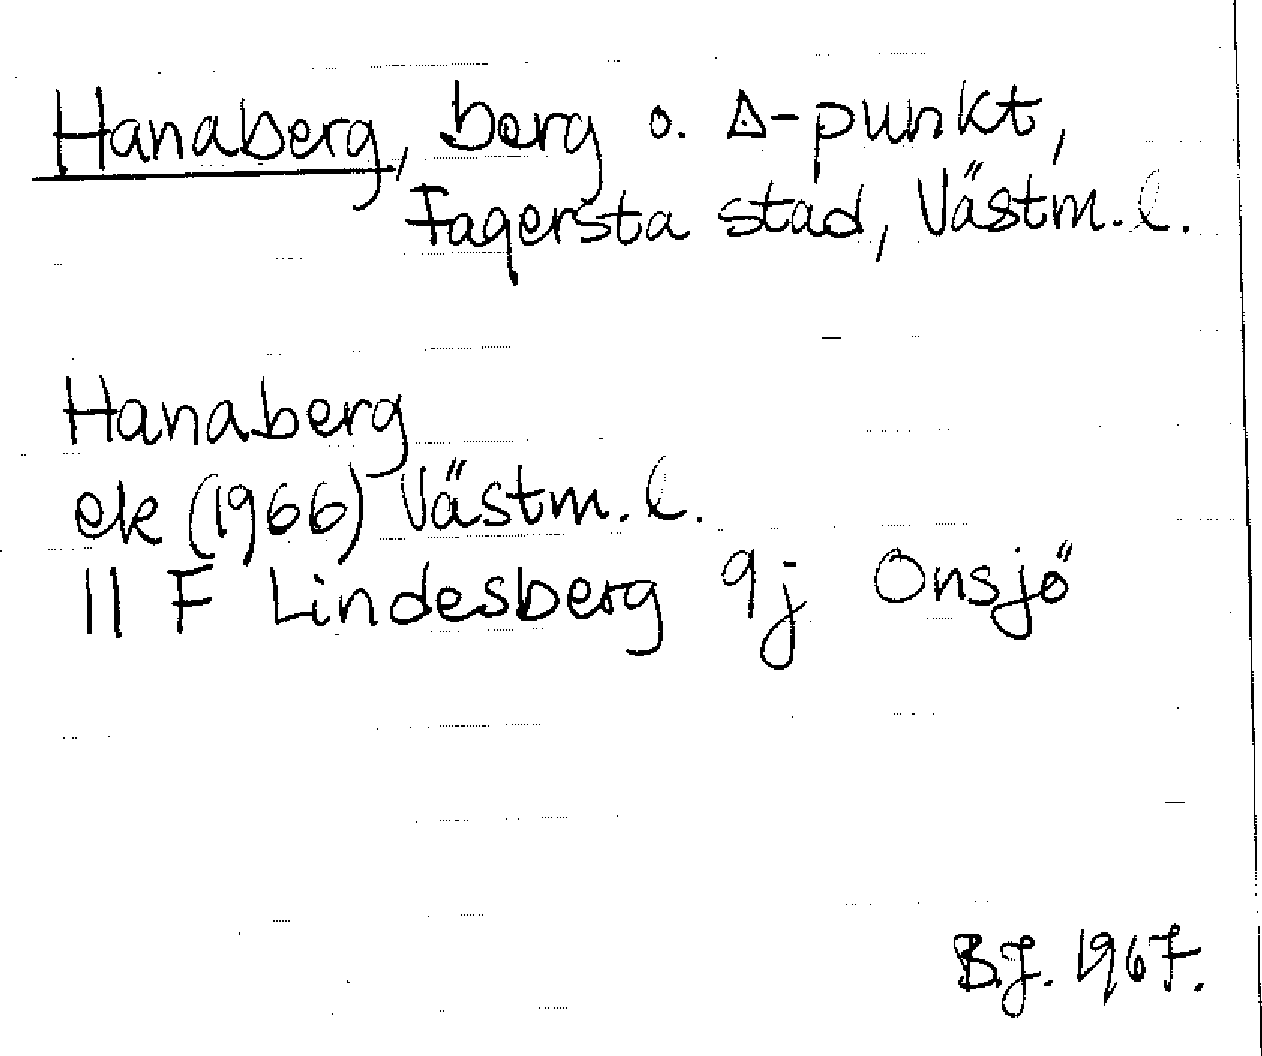 Hanaberg, berg o. ◬-punkt,
Fagersta stad, Västm. l.
Hanaberg
ek (1966) Västm. l.
11 F Lindesberg 9j Onsjö
B.J. 1967.